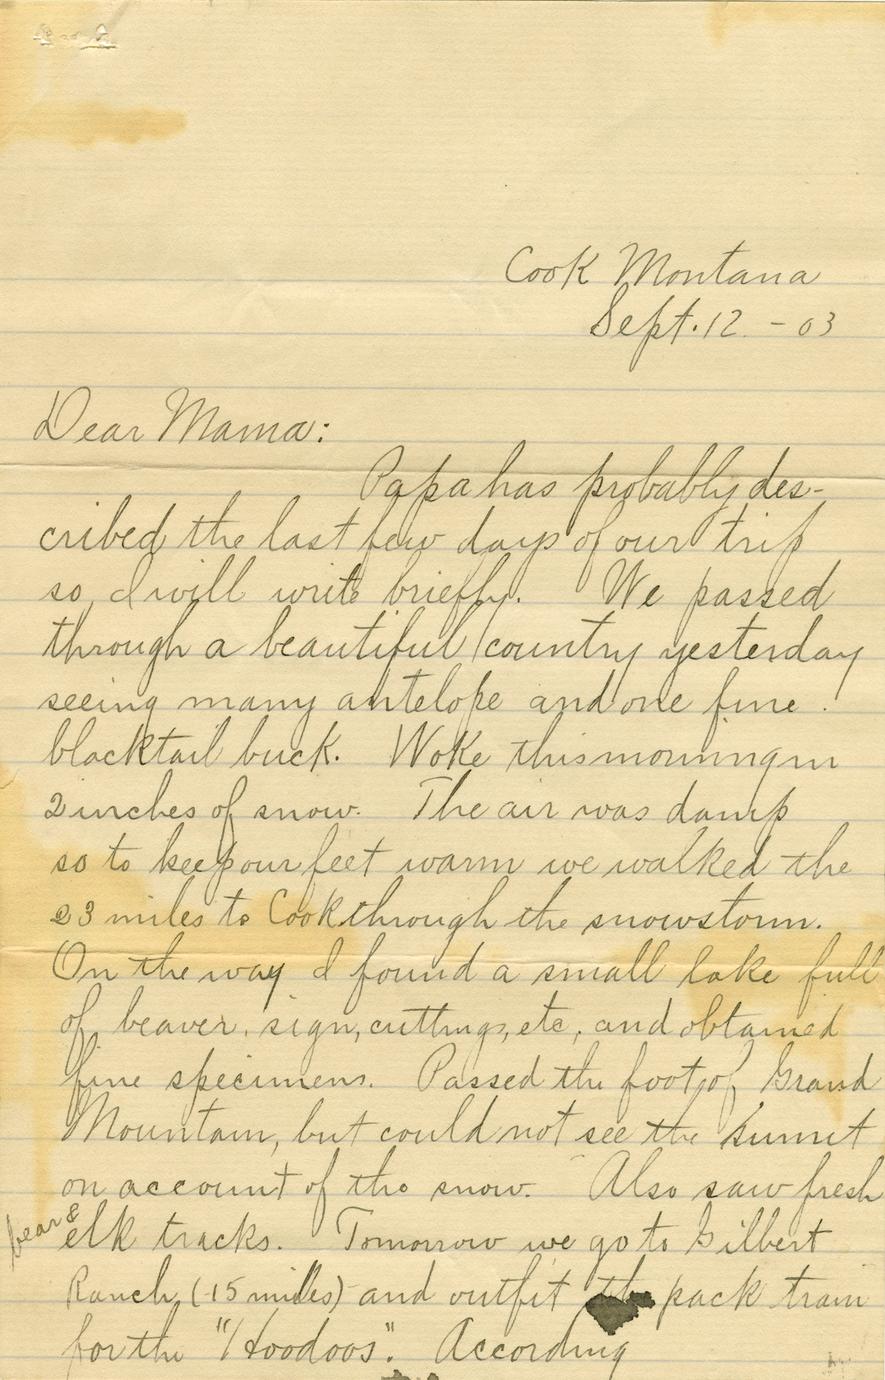 Cook Montana
Sept. 12. - 03
Dear Mama:
Papa has probably des-
cribed the last few days of our trip
so I will write briefly. We passed
through a beautiful country yesterday
seeing many antelope and one fine
blacktail buck. Woke this morning in
2 inches of snow. The air was damp
so to keep our feet warm we walked the
23 miles to Cook through the snowstorm.
On the way I found a small lake full
of beaver, sign, cuttings, etc, and obtained
fine specimens. Passed the foot of Grand
Mountain, but could not see the Sumit
on account of the snow. Also saw fresh
bear & elk tracks. Tomorrow we go to Gilbert
Ranch (15 miles) and outfit the pack train
for the "Hoodoos". According